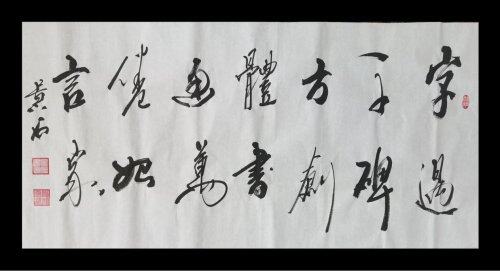 字過
千碑
方創
體書
通萬
卷始
言家
黄